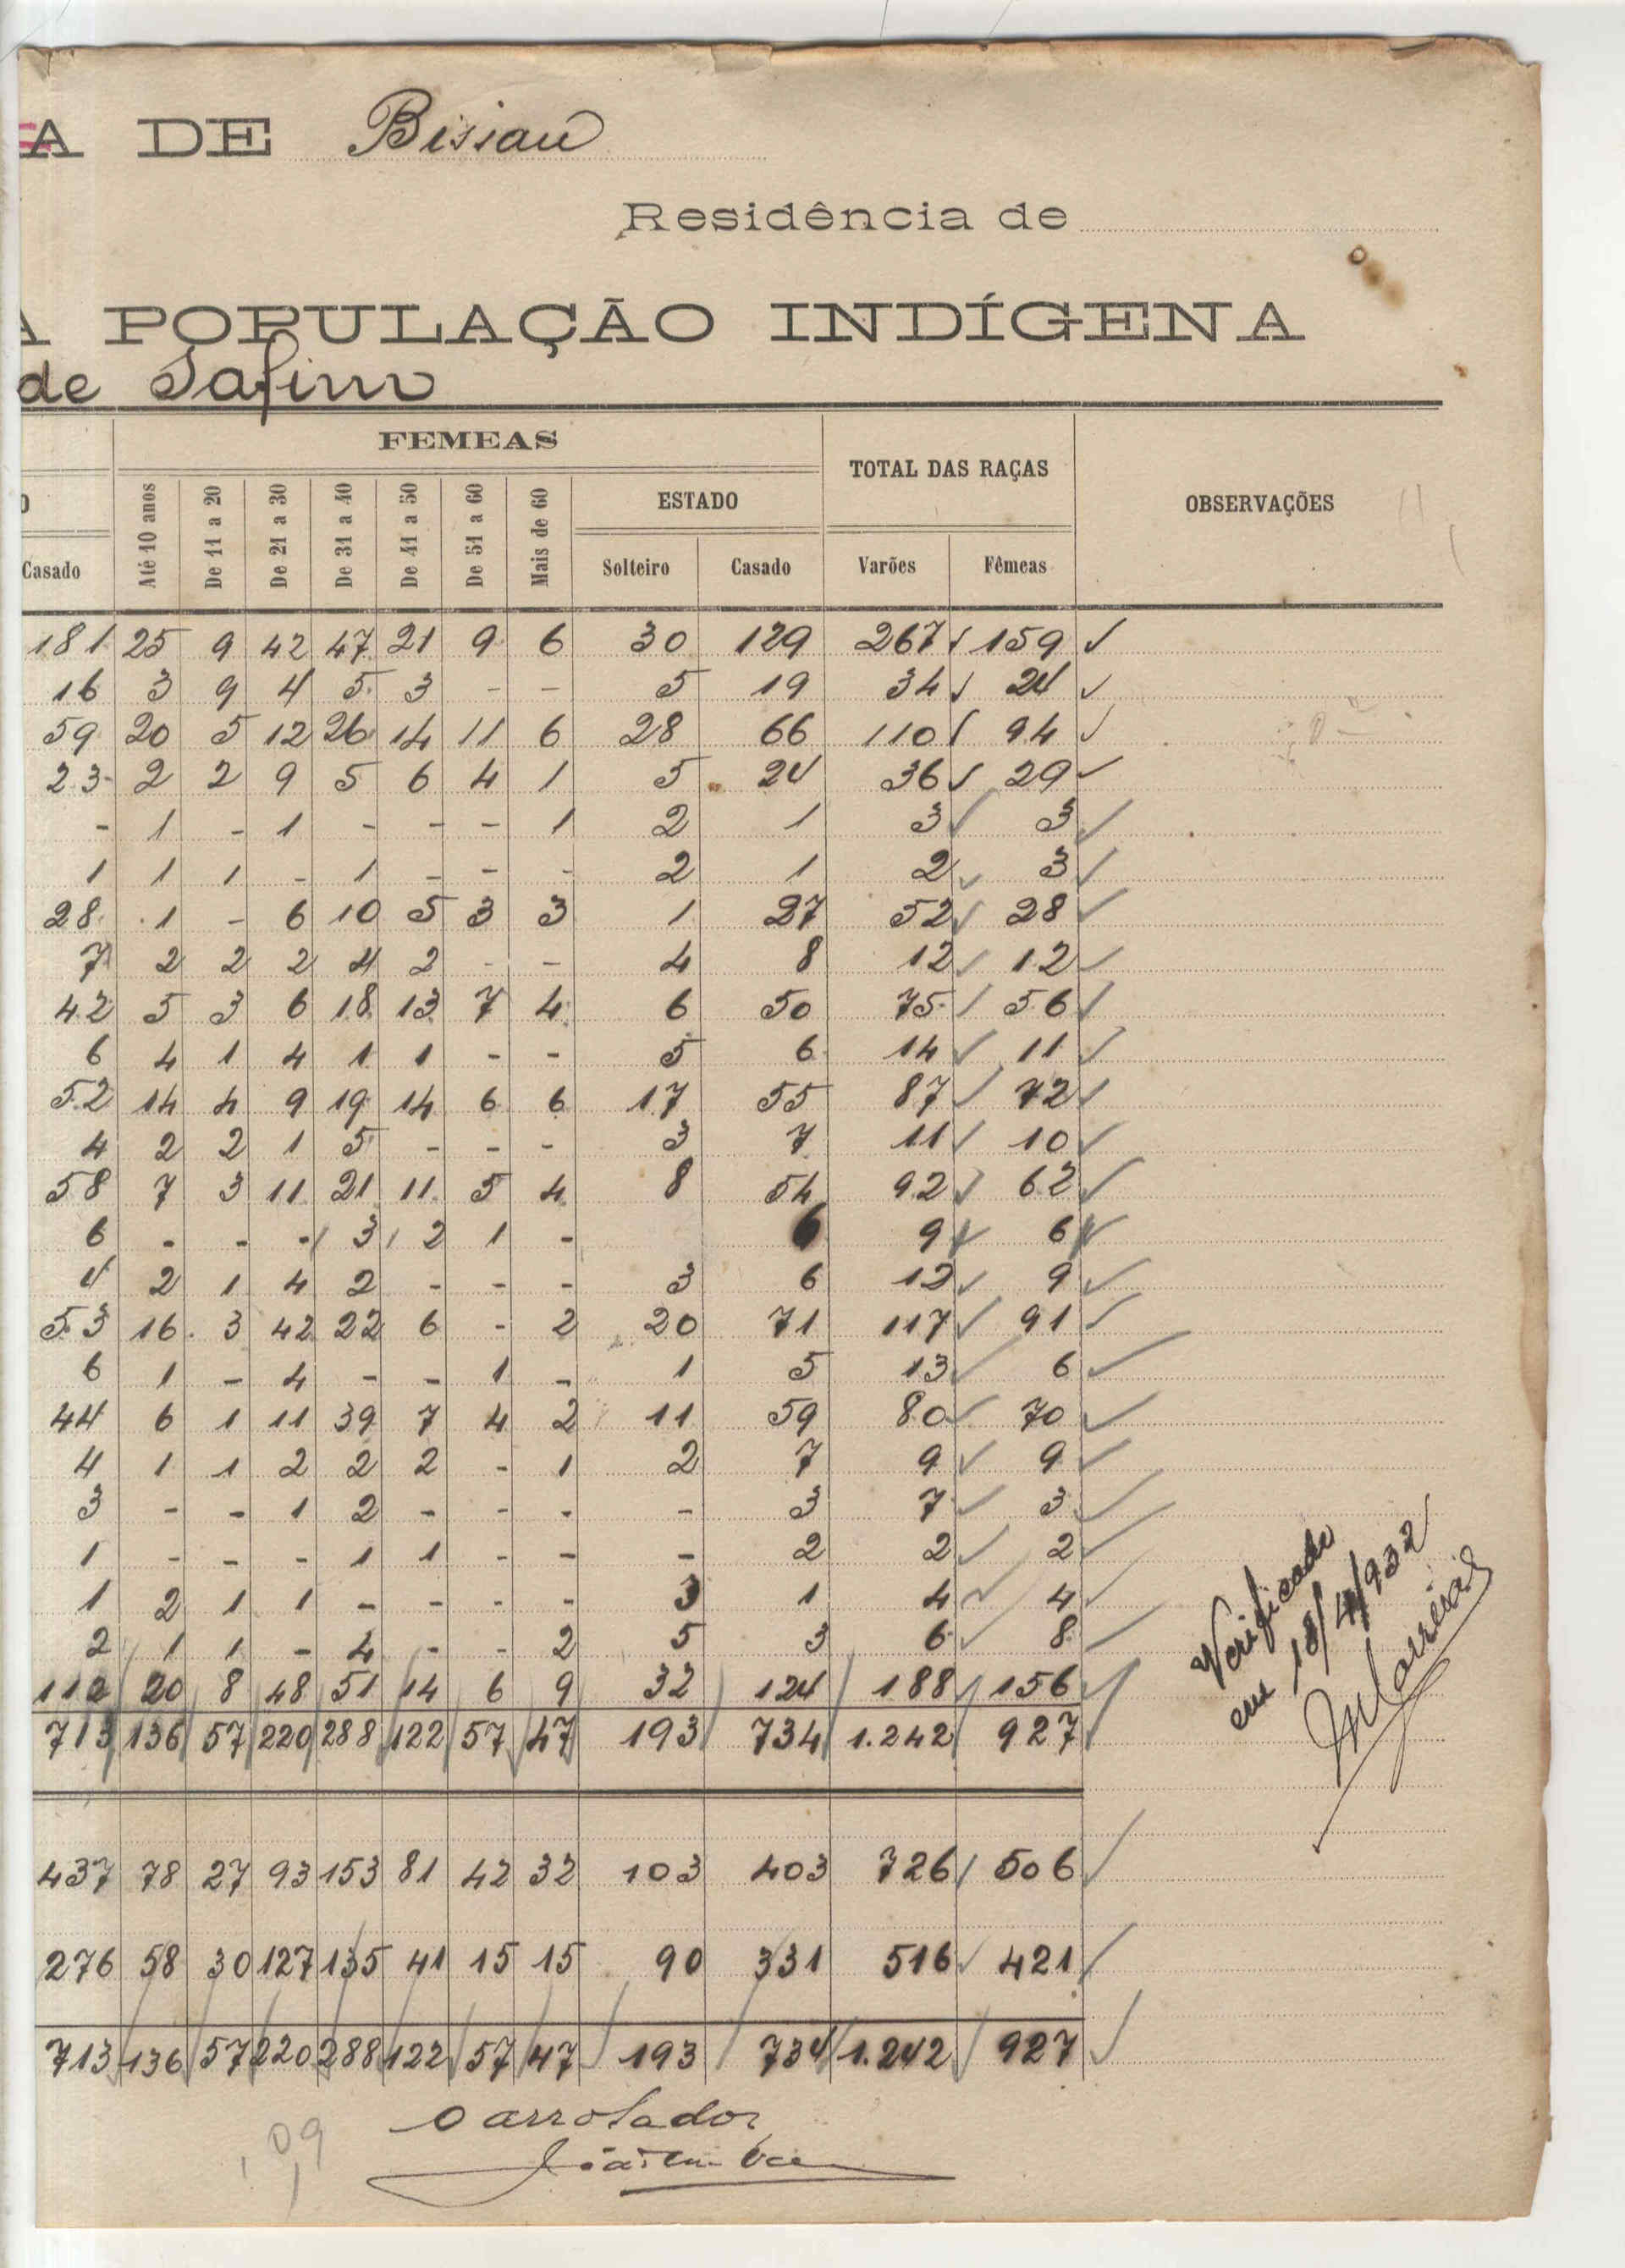 A DE Bissau
Residência de
A POPULAÇÃO INDÍGENA
de Safim
FEMEAS
TOTAL DAS RAÇAS
OBSERVAÇÕES
O
ESTADO
Casado Até 10 anos De 11 a 20 De 21 a 30 De 31 a 40 De 41 a 50 De 51 a 60 Mais de 60 Solteiro Casado Varões Fêmeas
181 25 9 42 47 21 9 6 30 129 267 159
16 3 9 4 5 3 - - 5 19 34 24
59 20 5 12 26 14 11 6 28 66 110 94
23 2 2 9 5 6 4 1 5 24 36 29
- 1 - 1 - - - 1 2 1 3 3
1 1 1 - 1 - - - 2 1 2 3
28 1 - 6 10 5 3 3 1 27 52 28
7 2 2 2 4 2 - - 4 8 12 12
42 5 3 6 18 13 7 4 6 50 75 56
6 4 1 4 1 1 - - 5 6 14 11
52 14 4 9 19 14 6 6 17 55 87 72
4 2 2 1 5 - - - 3 7 11 10
58 7 3 11 21 11 5 4 8 54 92 62
6 - - - 3 2 1 - 6 9 6
4 2 1 4 2 - - - 3 6 12 9
53 16 3 42 22 6 - 2 20 71 117 91
6 1 - 4 - - 1 - 1 5 13 6
44 6 1 11 39 7 4 2 11 59 80 70
4 1 1 2 2 2 - 1 2 7 9 9
3 - - 1 2 - - - - 3 7 3
1 - - - 1 1 - - - 2 2 2
1 2 1 1 - - - - 3 1 4 4
2 1 1 - 4 - - 2 5 3 6 8
112 20 8 48 51 14 6 9 32 124 188 156
713 136 57 220 288 122 57 47 193 734 1.242 927
Verificado
em 18/4/932
437 78 27 93 153 81 42 32 103 403 726 506
276 58 30 127 135 41 15 15 90 331 516 421
713 136 57 220 288 122 57 47 193 734 1.242 927
O arrolador
09